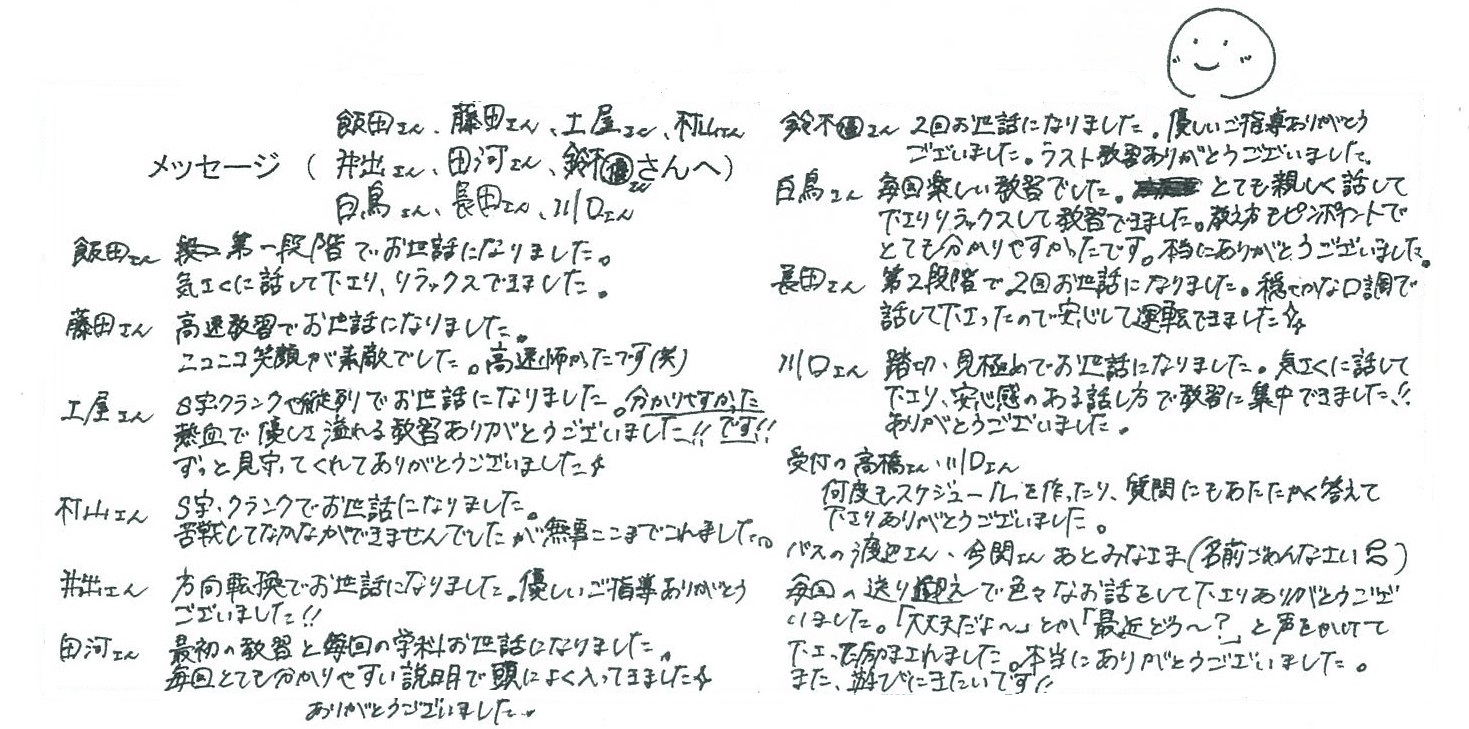 飯田さん、藤田さん、土屋さん、村山さん
メッセージ（井出さん、田河さん、鈴木優さんさんへ）
白鳥さん、長田さん、川口さん
飯田さん 第一段階でお世話になりました。
気さくに話して下さり、リラックスできました。
藤田さん 高速教習でお世話になりました。
ニコニコ笑顔が素敵でした。高速怖かったです(笑)
土屋さん S字・クランクや縦列でお世話になりました。分かりやすかった
熱血で優しさ溢れる教習ありがとうございました!!です!!
ずっと見守ってくれてありがとうございました☆
村山さん S字・クランクでお世話になりました。
苦戦してなかなかができませんでしたが無事ここまでこれました。
井出さん 方向転換でお世話になりました。優しいご指導ありがとう
ございました!!
田河さん 最初の教習と毎回の学科お世話になりました。
毎回とても分かりやすい説明で頭によく入ってきました☆
ありがとうございました。
鈴木優さん 2回お世話になりました。優しいご指導ありがとう
ございました。ラスト教習ありがとうございました。
白鳥さん 毎回楽しい教習でした。とても親しく話して
下さりリラックスして教習できました。教え方もピンポイントで
とても分かりやすかったです。本当にありがとうございました。
長田さん 第2段階で2回お世話になりました。穏やかな口調で
話して下さったので安心して運転できました☆
川口さん 踏切・見極めでお世話になりました。気さくに話して
下さり、安心感のある話し方で教習に集中できました!!
ありがとうございました。
受付の高橋さん・川口さん
何度もスケジュールを作ったり、質問にもあたたかく答えて
下さりありがとうございました。
バスの渡辺さん・今関さんあとみなさま(名前ごめんなさい)
毎回の送り迎えで色々なお話をして下さりありがとうござ
いました。「大丈夫だよ〜」とか「最近どう〜?」と声をかけて
下さって励まされました。本当にありがとうございました。
また、遊びにきたいです!!